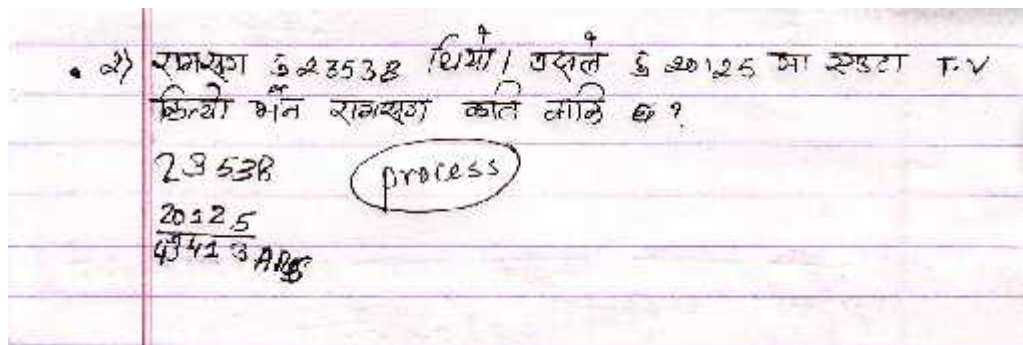 २) रामसंग रु 23538 थियो। उसले रु 20125 मा एउटा T.V
किन्यो भने रामसंग कति बाँकि छ ?
23538 process
20125
43413 Ans